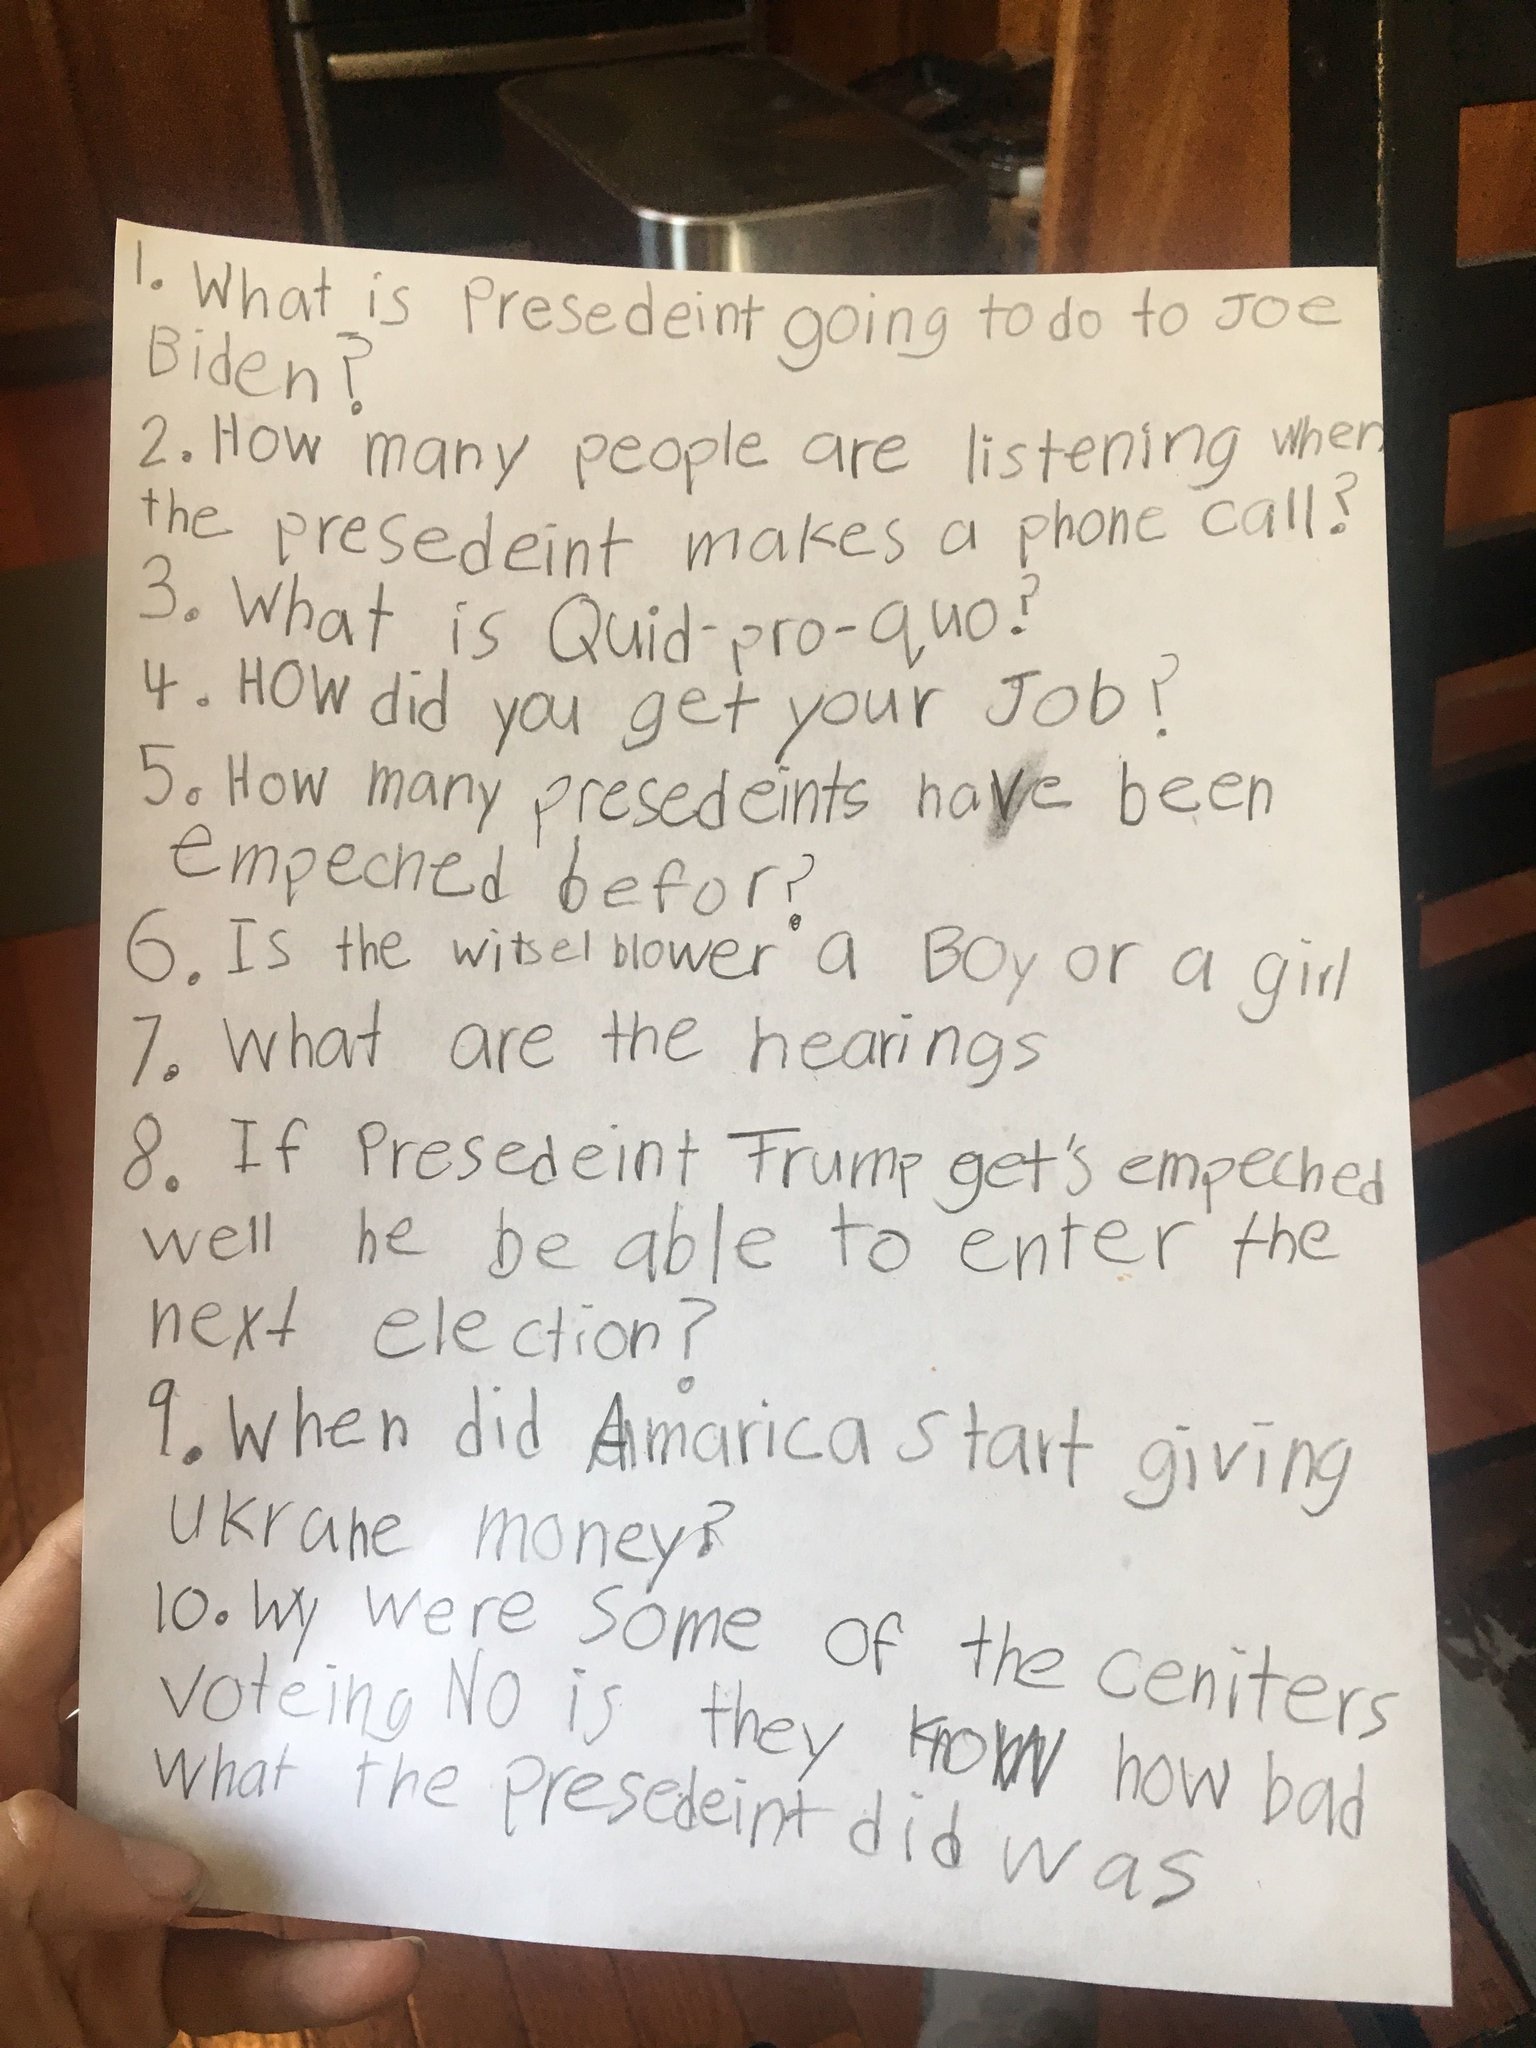 1. What is Presedeint going to do to Joe
Biden?
2. How many people are listening when
the presedeint makes a phone call?
3. What is Quid-pro-quo?
4. HOW did you get your Job?
5. How many presedeints have been
empeched befor?
6. Is the witsel blower a Boy or a girl
7. What are the hearings
8. If Presedeint Trump get's empeched
well he be able to enter the
next election?
9. When did Amarica start giving
ukrane money?
10. Wy were some of the ceniters
voteing NO is they know how bad
what the presedeint did was